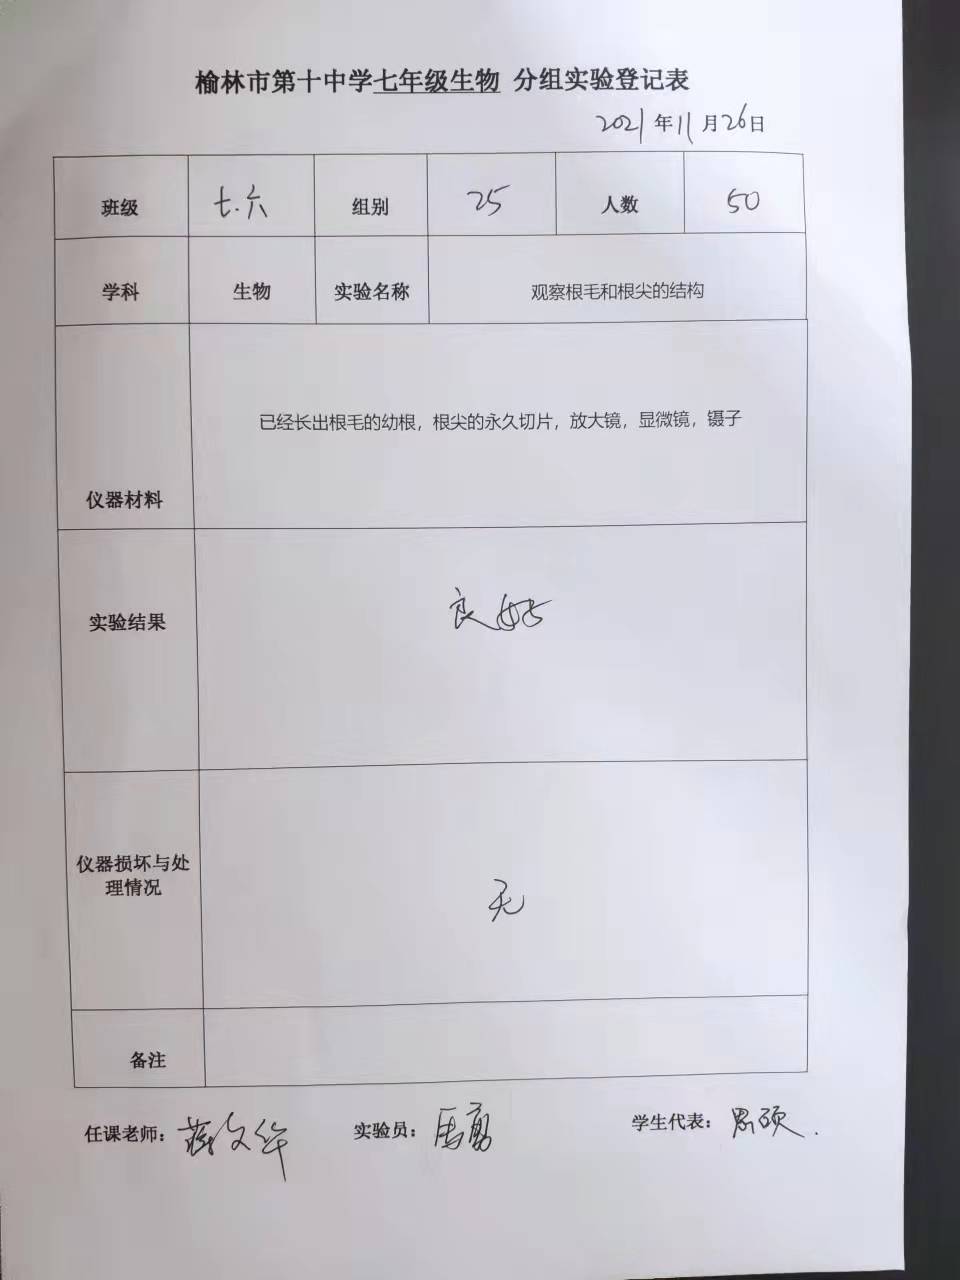 榆林市第十中学七年级生物 分组实验登记表
2021年11月26日
班级 七.六 组别 25 人数 50
学科 生物 实验名称 观察根毛和根尖的结构
已经长出根毛的幼根，根尖的永久切片，放大镜，显微镜，镊子
仪器材料
实验结果 良好
仪器损坏与处
理情况
无
备注
任课老师： 实验员： 学生代表：